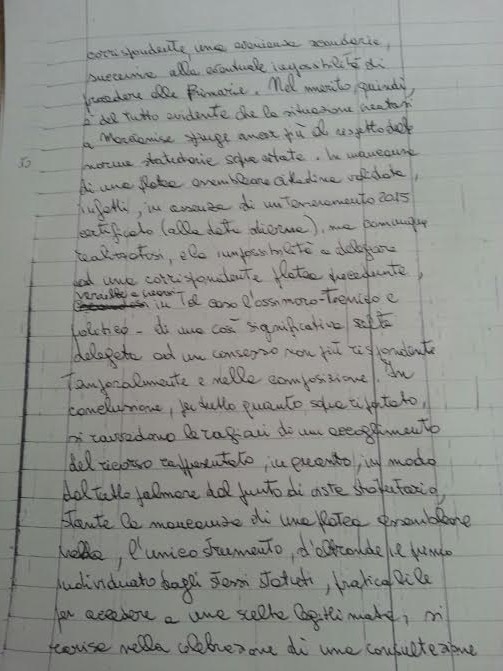 corrispondente una evenienza secondaria,
successiva alla eventuale impossibilità di
procedere alle Primarie. Nel merito, quindi,
è del tutto evidente che la situazione creatasi
a Marcianise spinge ancor più al rispetto delle
norme statutarie sopra citate. In mancanza
di una platea assembleare cittadina validata,
infatti, in assenza di un tesseramento 2015
certificato (alla data odierna), ma comunque
realizzatosi, e la impossibilità a delegare
ad una corrispondente platea precedente,
in tal caso l'ossimoro - tecnico e
politico - di una così significativa scelta
delegata ad un consesso non più rispondente
temporalmente e nella composizione. In
conclusione, per tutto quanto sopra riportato,
si ravvedono le ragioni di un accoglimento
del ricorso rappresentato, in quanto, in modo
del tutto palmare dal punto di vista statutario,
stante la mancanza di una platea assembleare
, l'unico strumento, d'altronde il primo
individuato dagli stessi statuti, praticabile
per accedere a una scelta legittimata, si
ravvisa nella celebrazione di una consultazione